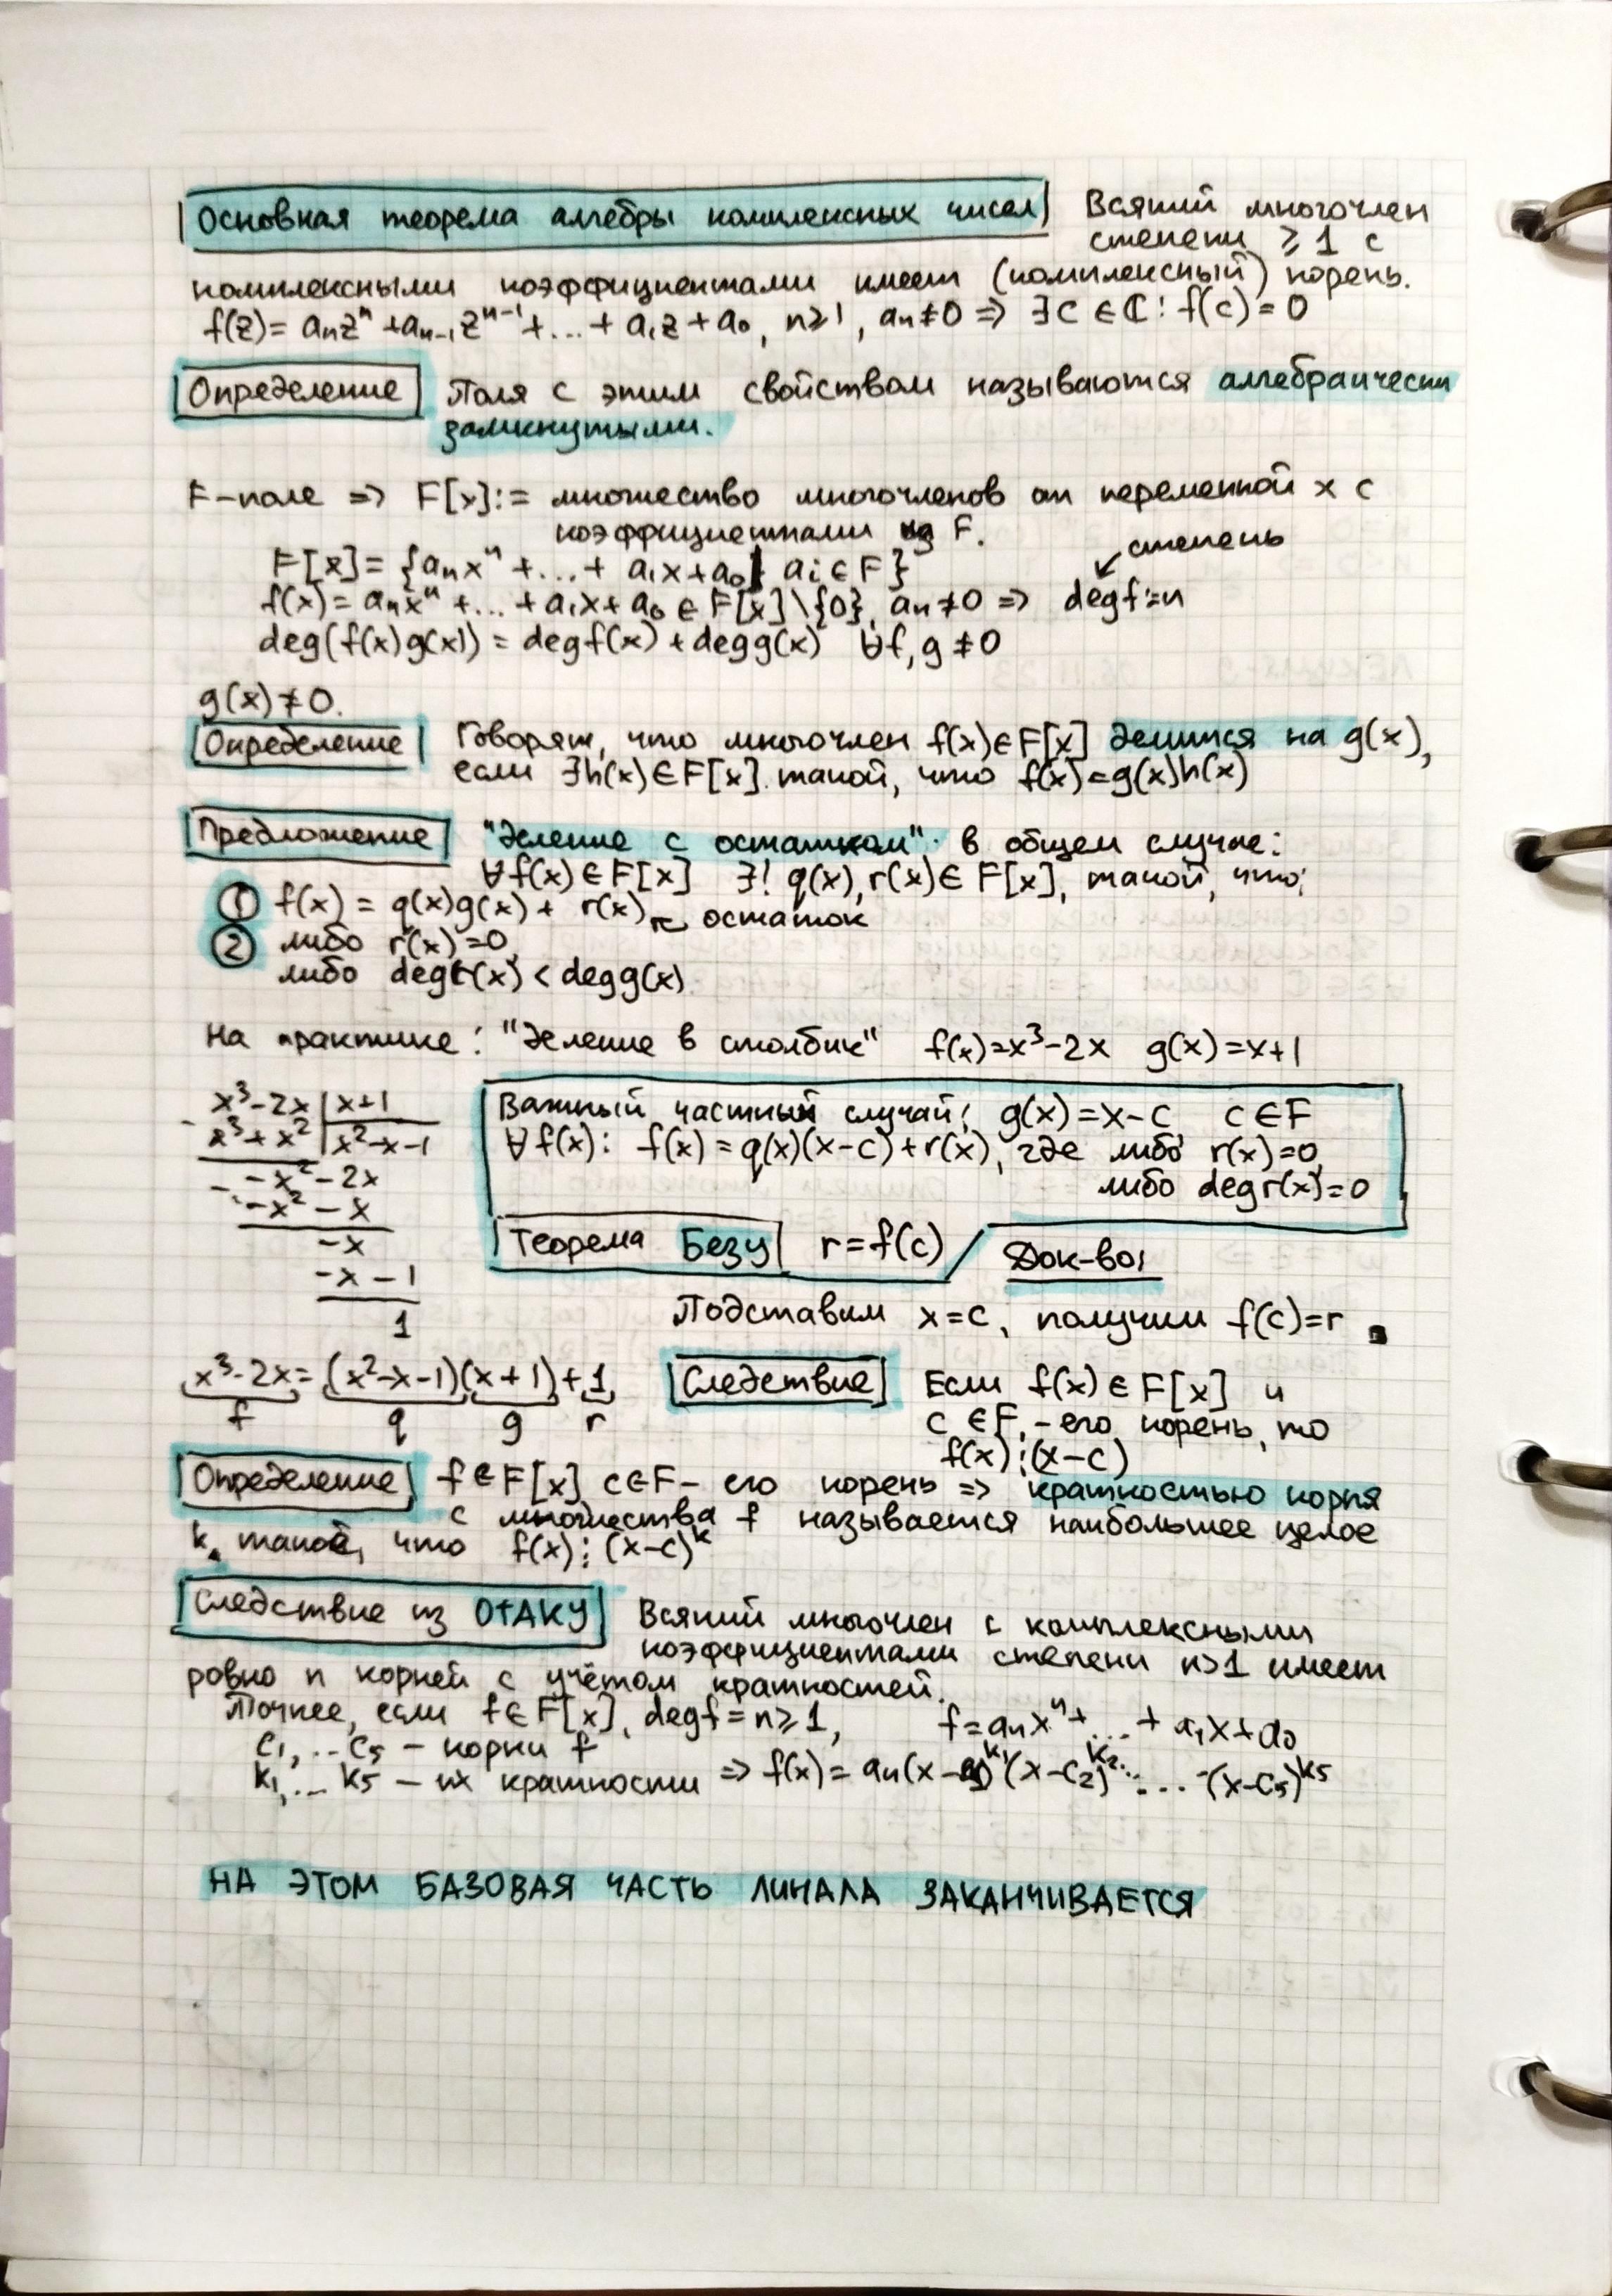 Основная теорема алгебры комплексных чисел Всякий многочлен
степени ≥ 1 с
комплексными коэффициентами имеет (комплексный) корень.
f(z) = aₙzⁿ + aₙ₋₁zⁿ⁻¹ + ... + a₁z + a₀, n ≥ 1, aₙ ≠ 0 => ∃c ∈ ℂ : f(c) = 0
Определение Поля с этим свойством называются алгебраически
замкнутыми.
F-поле => F[x] := множество многочленов от переменной x с
коэффициентами из F.
степень
F[x] = {aₙxⁿ + ... + a₁x + a₀ | aᵢ ∈ F}
f(x) = aₙxⁿ + ... + a₁x + a₀ ∈ F[x]\{0}, aₙ ≠ 0 => deg f := n
deg(f(x)g(x)) = deg f(x) + deg g(x) ∀f, g ≠ 0
g(x) ≠ 0.
Определение Говорят, что многочлен f(x) ∈ F[x] делится на g(x),
если ∃h(x) ∈ F[x] такой, что f(x) = g(x)h(x)
Предложение "Деление с остатком" в общем случае:
∀f(x) ∈ F[x] ∃! q(x), r(x) ∈ F[x], такой, что:
① f(x) = q(x)g(x) + r(x) ← остаток
② либо r(x) = 0
либо deg r(x) < deg g(x)
На практике: "Деление в столбик" f(x) = x³ - 2x g(x) = x + 1
x³ - 2x | x + 1
x³ + x² | x² - x - 1
- x² - 2x
- x² - x
- x
- x - 1
1
Важный частный случай! g(x) = x - c c ∈ F
∀f(x): f(x) = q(x)(x - c) + r(x), где либо r(x) = 0
либо deg r(x) = 0
Теорема Безу r = f(c) Док-во:
Подставим x = c, получим f(c) = r ■
x³ - 2x = (x² - x - 1)(x + 1) + 1
f q g r
Следствие Если f(x) ∈ F[x] и
c ∈ F - его корень, то
f(x) ⋮ (x - c)
Определение f ∈ F[x] c ∈ F - его корень => кратностью корня
c множества f называется наибольшее целое
k такое, что f(x) ⋮ (x - c)ᵏ
Следствие из ОтАКЧ Всякий многочлен с комплексными
коэффициентами степени n ≥ 1 имеет
ровно n корней с учётом кратностей.
Точнее, если f ∈ F[x], deg f = n ≥ 1, f = aₙxⁿ + ... + a₁x + a₀
c₁, ... c₅ - корни f
k₁, ... k₅ - их кратности => f(x) = aₙ(x - c₁)ᵏ¹ (x - c₂)ᵏ² · ... · (x - c₅)ᵏ⁵
НА ЭТОМ БАЗОВАЯ ЧАСТЬ ЛИНАЛА ЗАКАНЧИВАЕТСЯ